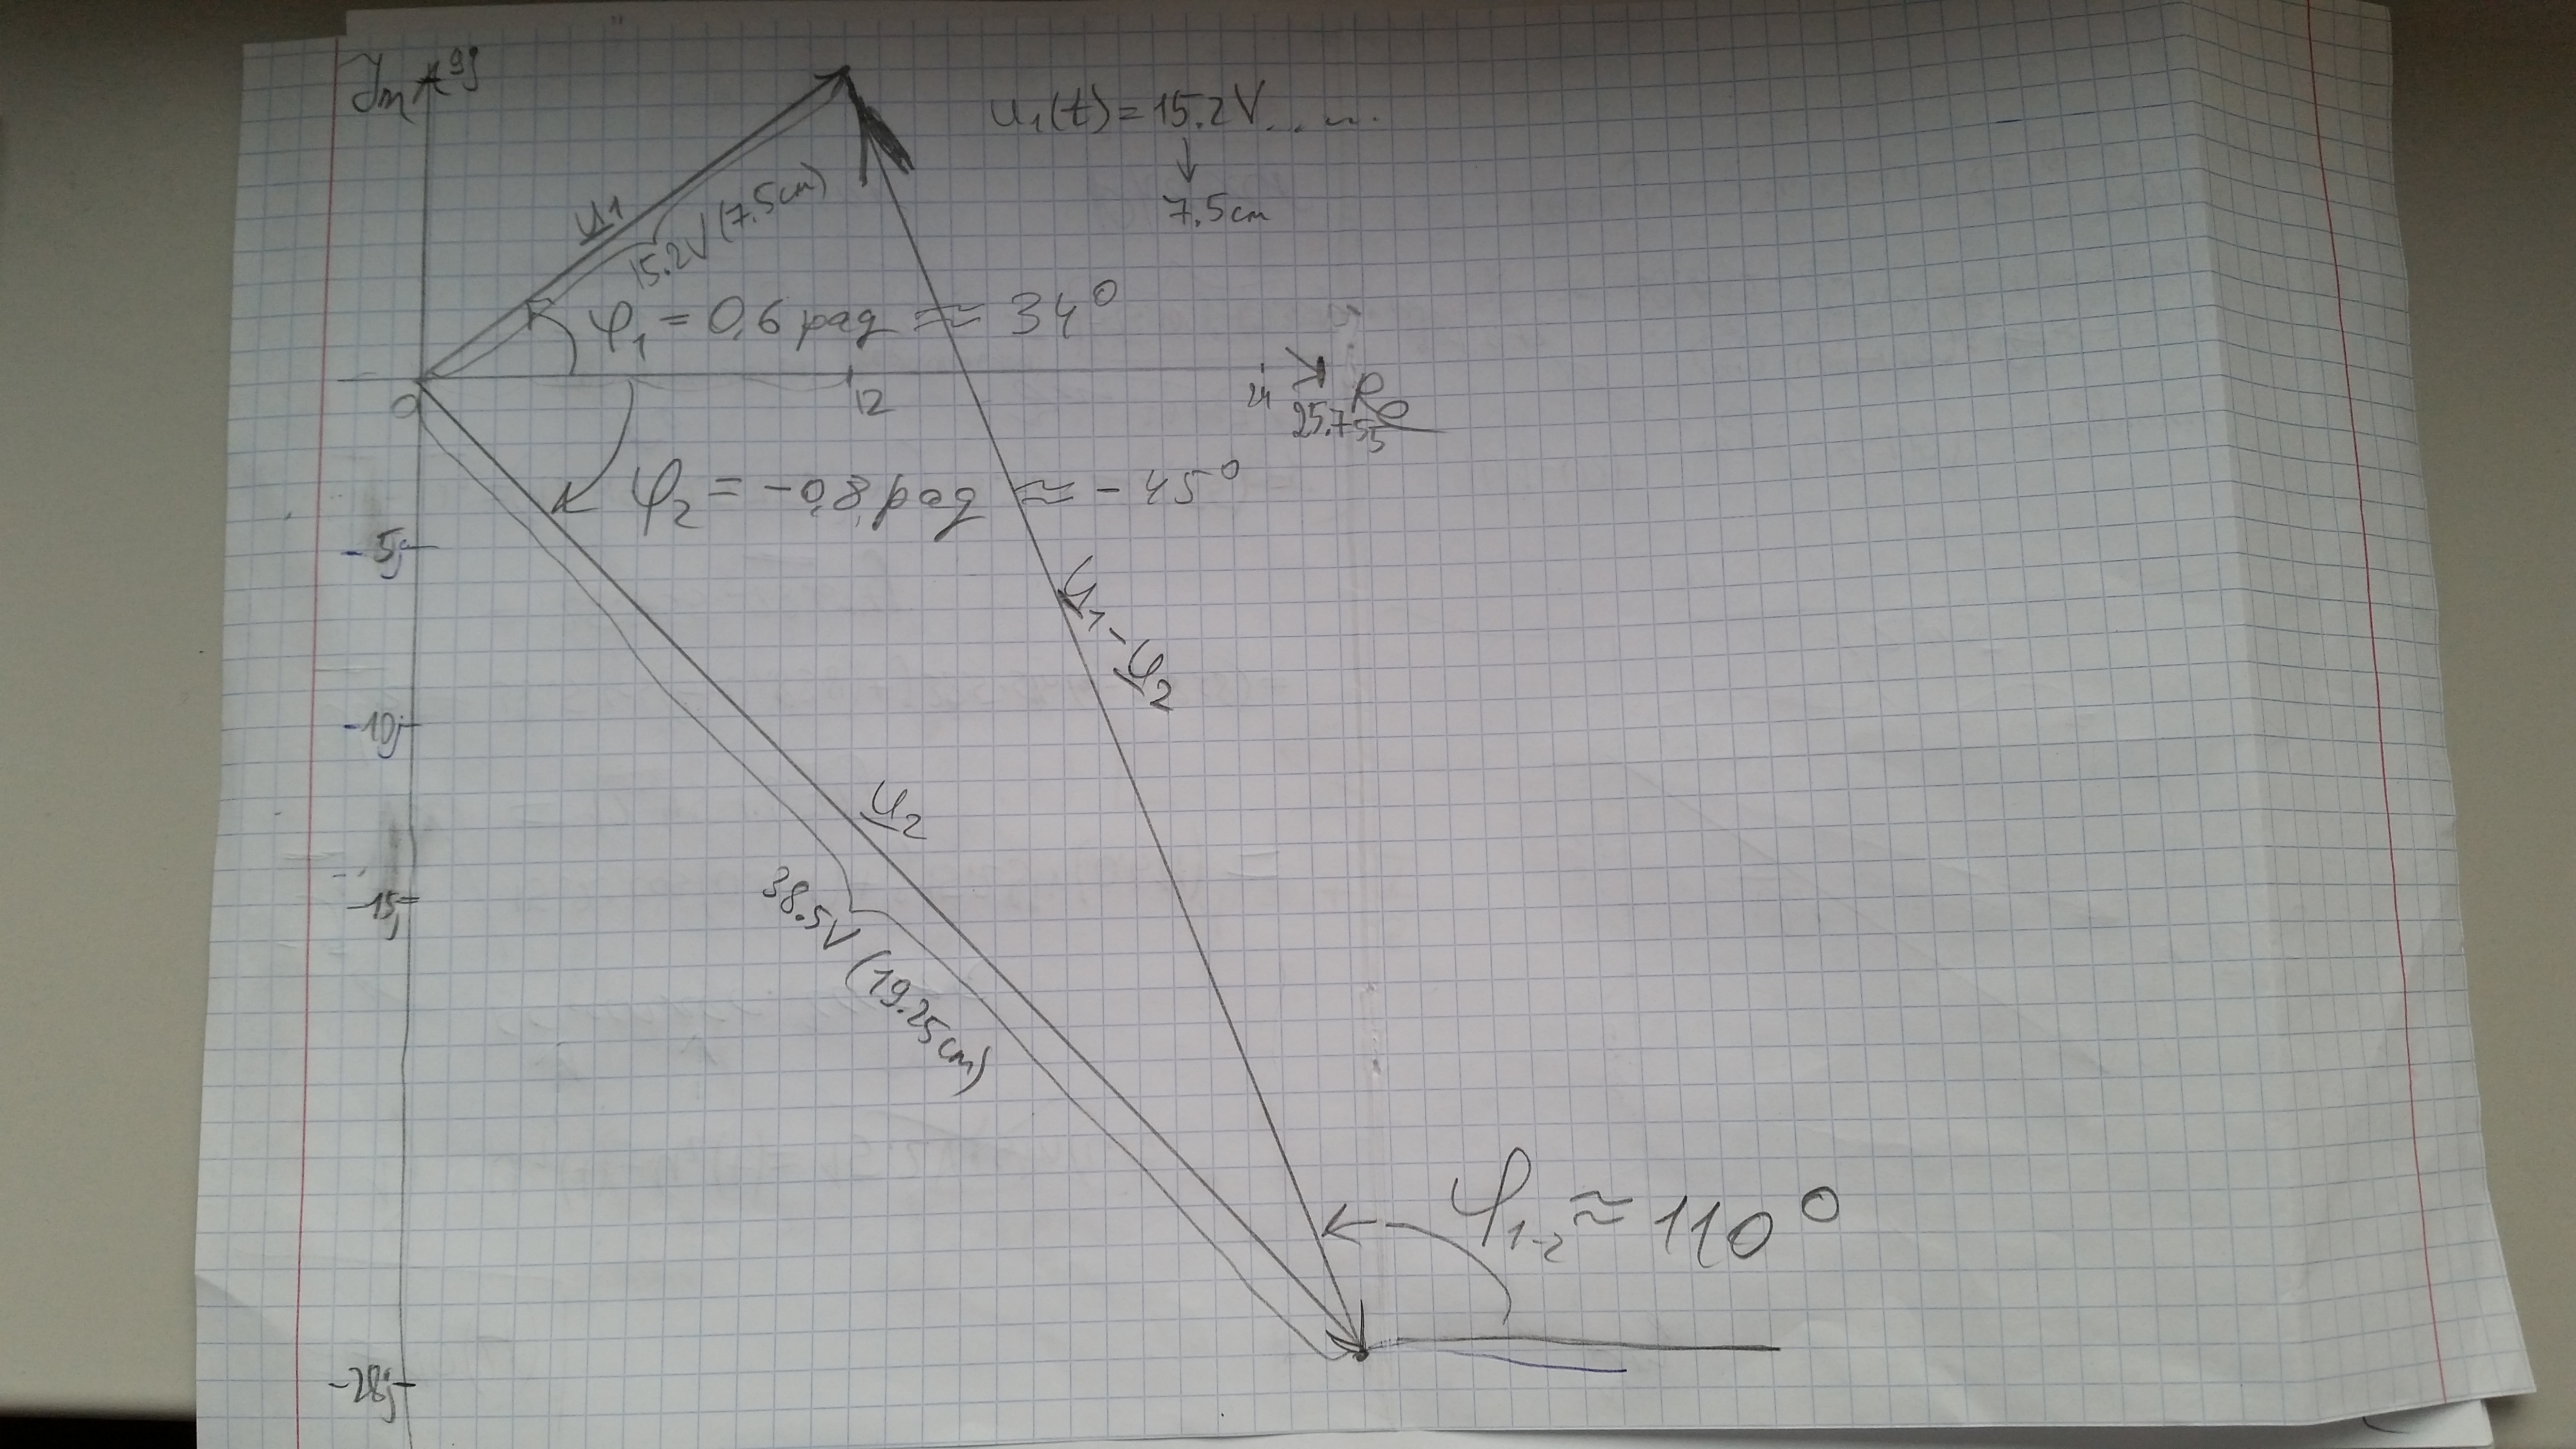 Im 9j
u₁(t) = 15.2V.....
7.5cm
u₁
15.2V (7.5cm)
φ₁ = 0,6 рад ≈ 34°
0
12
24
Re
25.755
φ₂ = -0,8 рад ≈ -45°
-5j
u₁ - u₂
-10j
u₂
-15j
38.5V (19.25cm)
φ₁₋₂ ≈ 110°
-28j